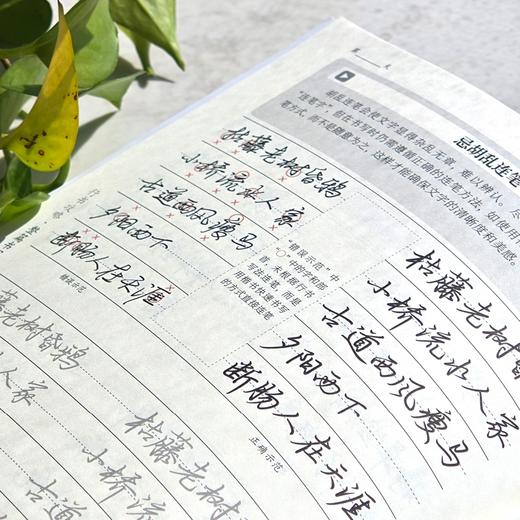 第 天
忌胡乱连笔
胡乱连笔会使文字显得杂乱无章,难以辨认。尽
“连笔字”,但在书写时仍需遵循正确的连笔方法,如使用
笔方式,而不是随意为之,这样才能确保文字的清晰度和美感。
枯藤老树昏鸦
小桥流水人家
古道西风瘦马
夕阳西下
断肠人在天涯
错误示范
“错误示范”中
“○”中的字和部
首,未根据行书
写法连笔,而是
用楷书快速书写
的方式直接连笔
枯藤老树
小桥流水人家
古道西风瘦马
夕阳西下
断肠人在天涯
正确示范
藤老树昏鸦
人家
枯藤老树
小桥流水人
古道西